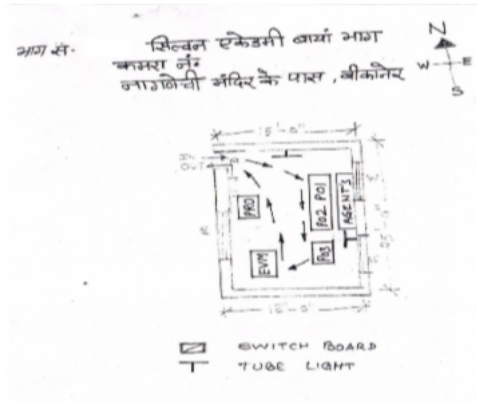 भाग सं.
सिल्वन एकेडमी बायां भाग
कमरा नं.
नागणेची मंदिर के पास, बीकानेर
N
W E
S
15'-0"
IN
OUT
PRO
P02 P01
AGENTS
EVM
P03
W
25'-0"
15'-0"
SWITCH BOARD
TUBE LIGHT